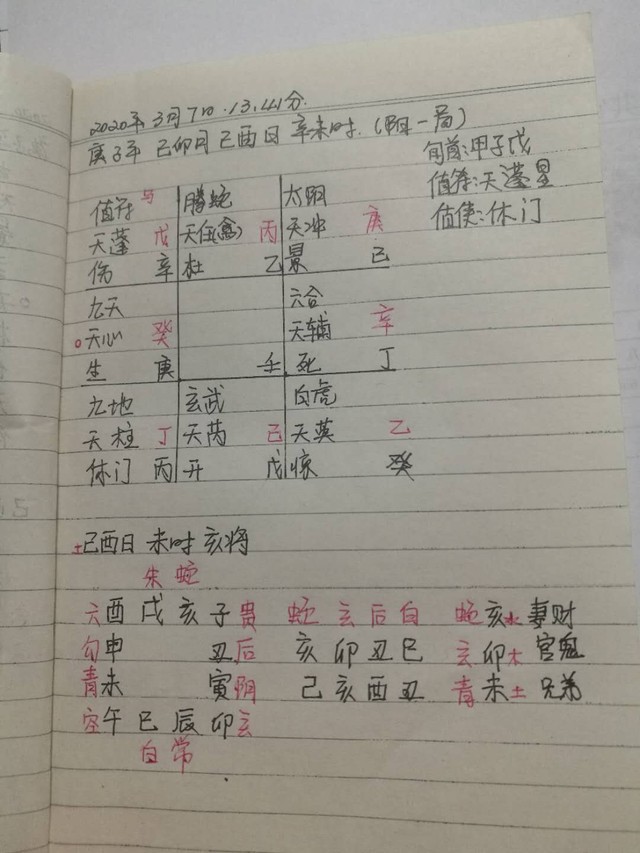 2020年3月7日.13,41分.
庚子年 己卯月 己酉日 辛未时.(阳一局)
旬首:甲子戊
值符:天蓬星
值使:休门
值符 马 螣蛇 太阴
天蓬 戊 天任(禽) 丙 天冲 庚
伤 辛 杜 乙 景 己
九天 六合
天心 癸 天辅 辛
生 庚 壬 死 丁
九地 玄武 白虎
天柱 丁 天芮 己 天英 乙
休门 丙 开 戊 惊 癸
土己酉日 未时 亥将
朱 蛇
六酉 戌 亥 子贵 蛇 玄 后 白 蛇亥水 妻财
勾申 丑后 亥 卯 丑 巳 玄卯木 官鬼
青未 寅阴 己 亥 酉 丑 青未土 兄弟
空午 巳 辰 卯玄
白 常